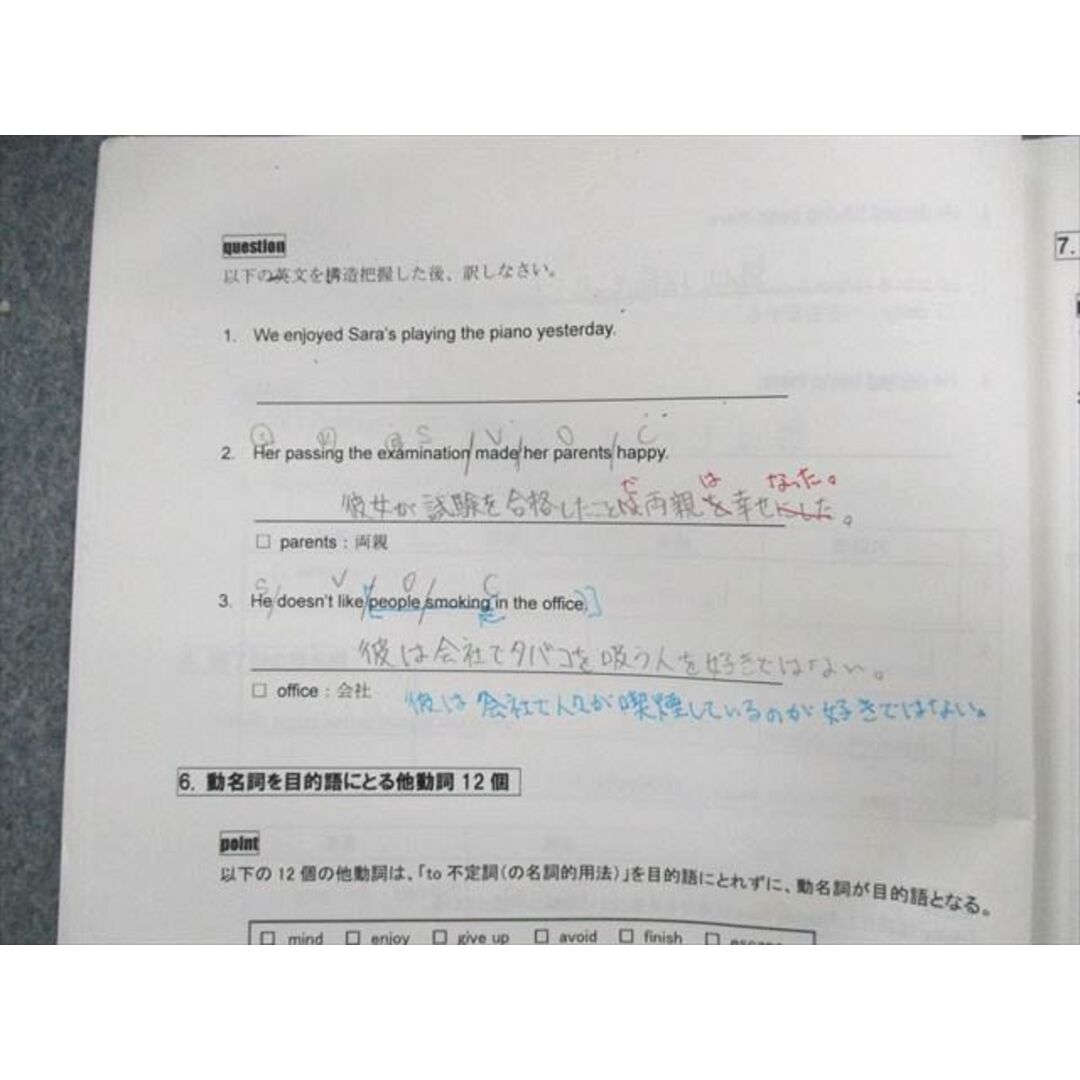 question
以下の英文を構造把握した後、訳しなさい。
7.
1. We enjoyed Sara's playing the piano yesterday.
S V O C
2. Her passing the examination/made/her parents/happy.
で は なった。
彼女が試験を合格したことは両親を幸せにした。
□ parents : 両親
S V O C
3. He/doesn't like/people/smoking in the office.]
彼は会社でタバコを吸う人を好きではない。
□ office : 会社
彼は会社で人々が喫煙しているのが好きではない。
6. 動名詞を目的語にとる他動詞 12 個
point
以下の 12 個の他動詞は、「to 不定詞(の名詞的用法)」を目的語にとれずに、動名詞が目的語となる。
□ mind □ enjoy □ give up □ avoid □ finish □